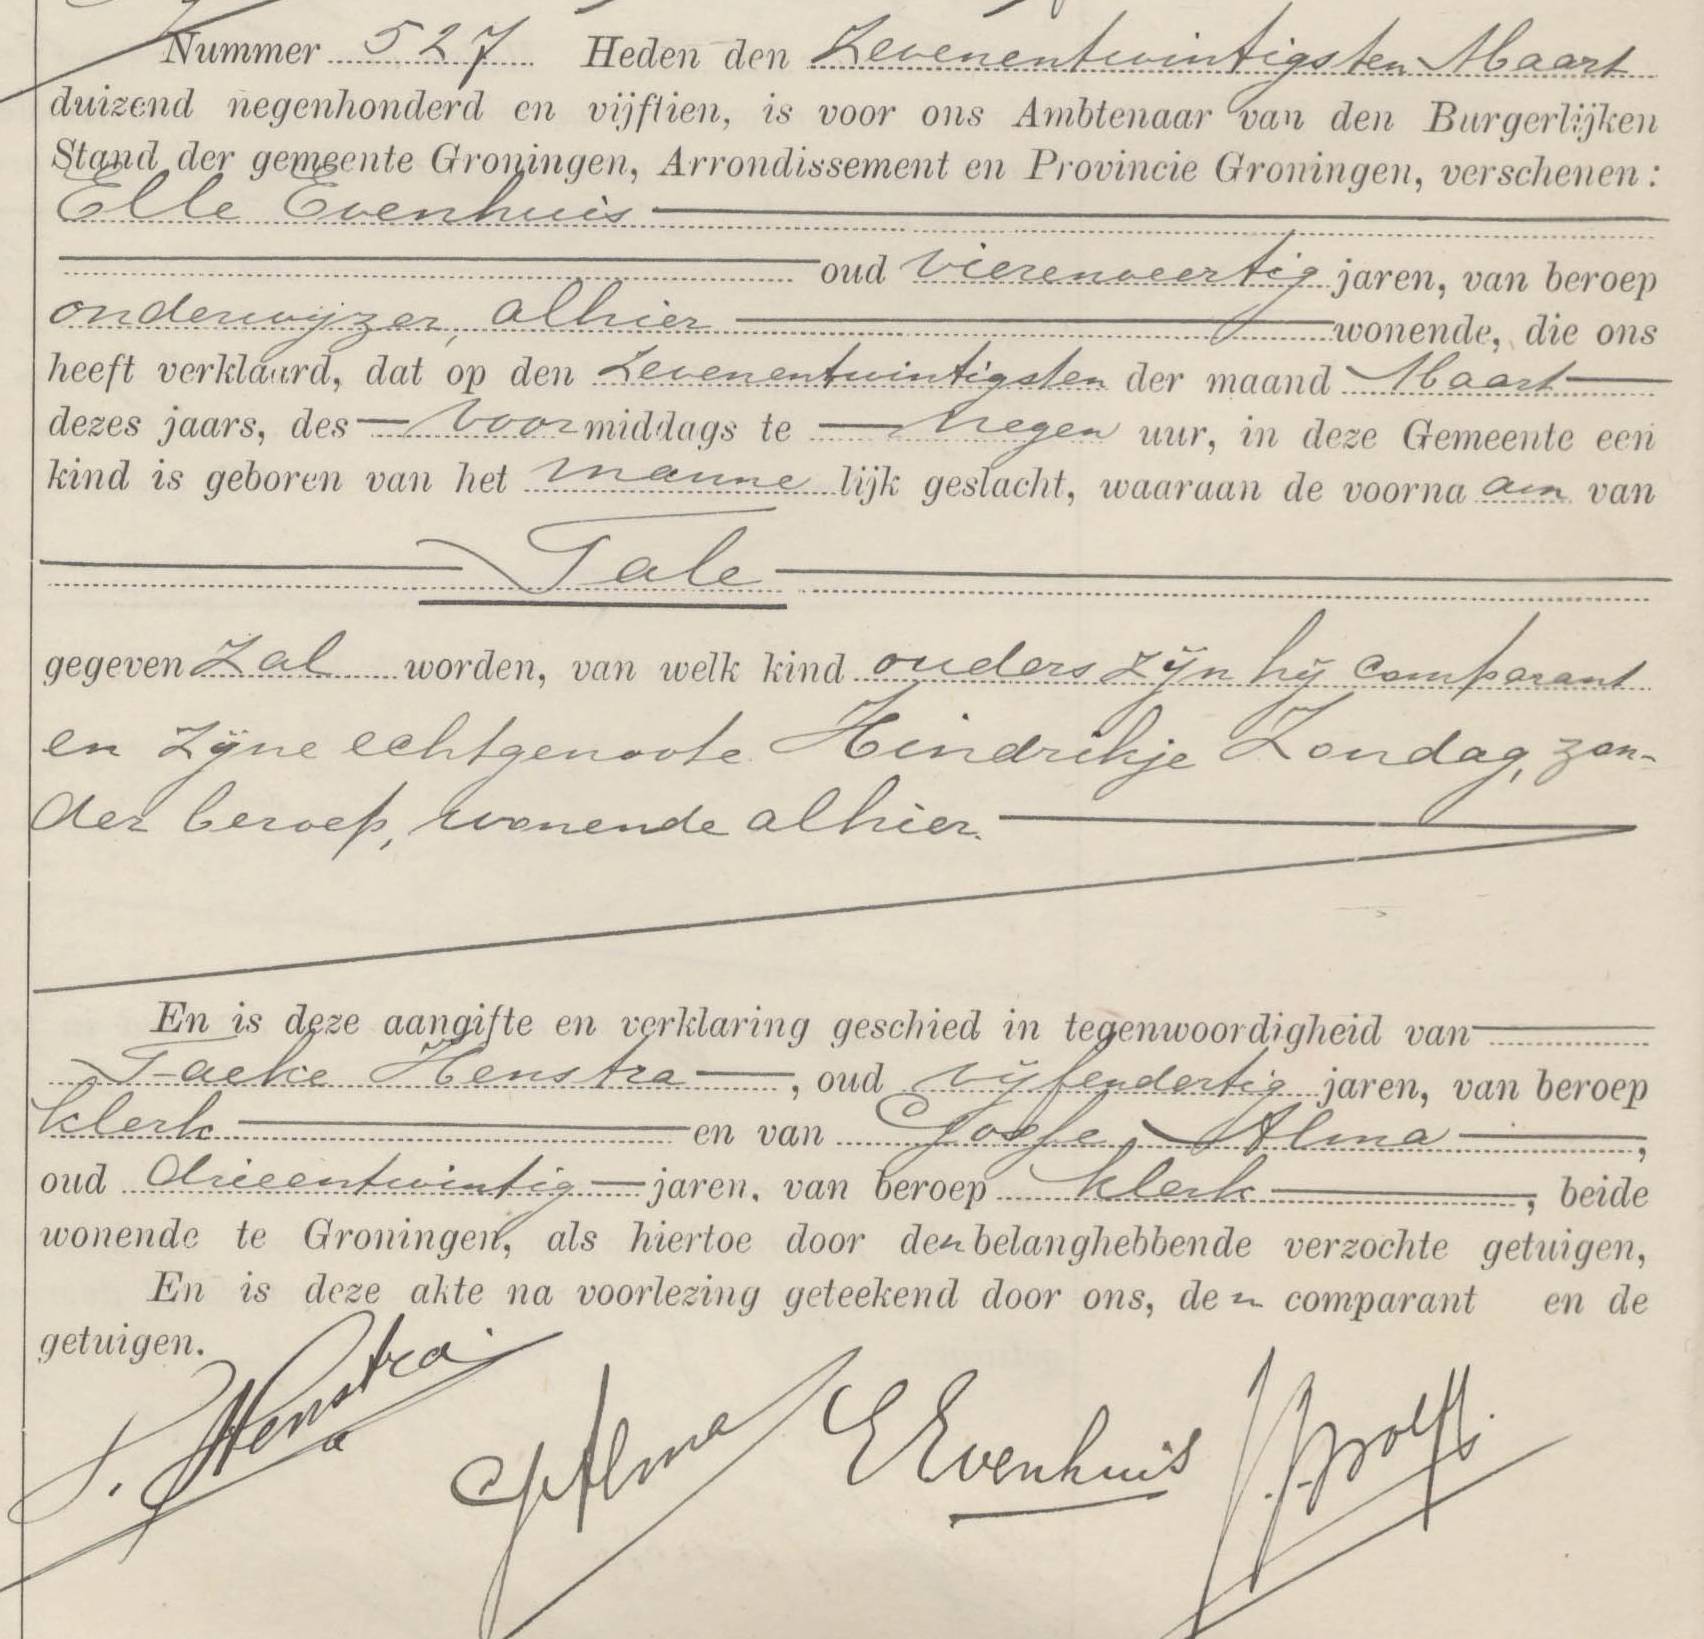 Nummer 527 Heden den Zevenentwintigsten Maart
duizend negenhonderd en vijftien, is voor ons Ambtenaar van den Burgerlijken
Stand der gemeente Groningen, Arrondissement en Provincie Groningen, verschenen:
Elle Evenhuis
oud vierenveertig jaren, van beroep
onderwijzer, alhier wonende, die ons
heeft verklaard, dat op den Zevenentwintigsten der maand Maart
dezes jaars, des Voormiddags te negen uur, in deze Gemeente een
kind is geboren van het mannelijk geslacht, waaraan de voornaam van
Tale
gegeven Zal worden, van welk kind ouders zijn hij comparant
en zijne echtgenoote Hindrikje Zondag, zon-
der beroep, wonende alhier.
En is deze aangifte en verklaring geschied in tegenwoordigheid van
Taeke Henstra, oud vijfendertig jaren, van beroep
klerk en van Gosse Alma,
oud drieentwintig jaren, van beroep klerk, beide
wonende te Groningen, als hiertoe door den belanghebbende verzochte getuigen,
En is deze akte na voorlezing geteekend door ons, den comparant en de
getuigen.
T. Henstra GAlma EEvenhuis